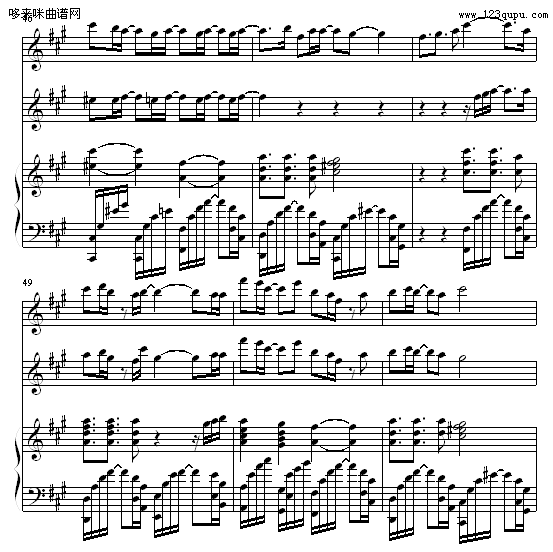 哆来咪曲谱网
www.123qupu.com
46
49